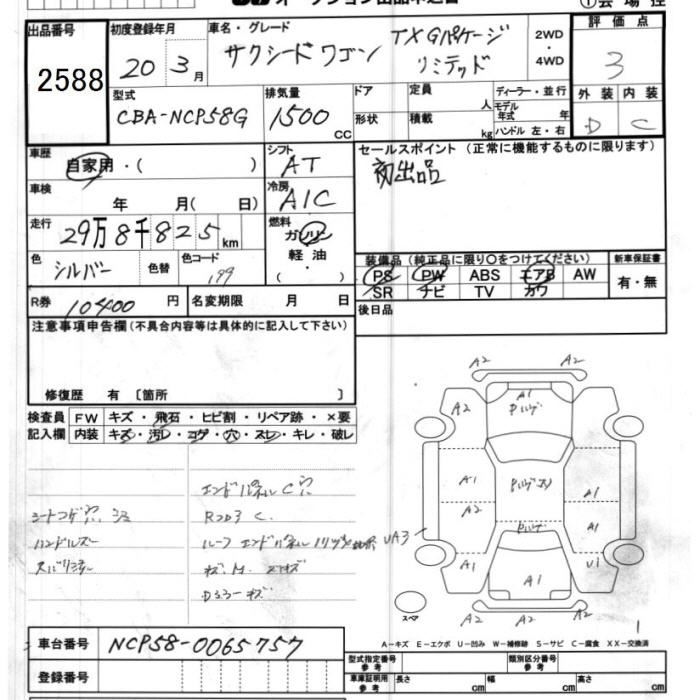 出品番号
2588
初度登録年月
20年 3月
車名・グレード
サクシードワゴン TXGパケージリミテッド
2WD
・
4WD
評価点
3
外装 内装
D C
型式
CBA-NCP58G
排気量
1500
CC
ドア
形状
定員
人
積載
kg
ディーラー・並行
モデル
年式 年
ハンドル 左・右
車歴
自家用・( )
シフト
AT
セールスポイント (正常に機能するものに限ります)
初出品
車検
年 月( 日)
冷房
A/C
走行
29万8千825km
燃料
ガソリン
軽油
( )
色
シルバー
色替
色コード
199
装備品 (純正品に限り○をつけてください)
新車保証書
PS PW ABS エアB AW
有・無
SR ナビ TV カワ
R券 10400円
名変期限 月 日
後日品
注意事項申告欄(不具合内容等は具体的に記入して下さい)
修復歴 有 〔箇所 〕
検査員 FW キズ・飛石・ヒビ割・リペア跡・×要
記入欄 内装 キズ・汚レ・コゲ・穴・スレ・キレ・破レ
エンドパネルC穴
シートコゲ穴
ハンドルスレ
A2 A2
A1
A2 A2
A1 A1
A2 A1
UA3
A1 U1
A1
スペア
A2 A2
1
A-キズ E-エクボ U-凹み W-補修跡 S-サビ C-腐食 XX-交換済
車台番号 NCP58-0065757
登録番号
型式指定番号
参考
類別区分番号
参考
車庫証明用
参考
長さ cm 幅 cm 高さ cm